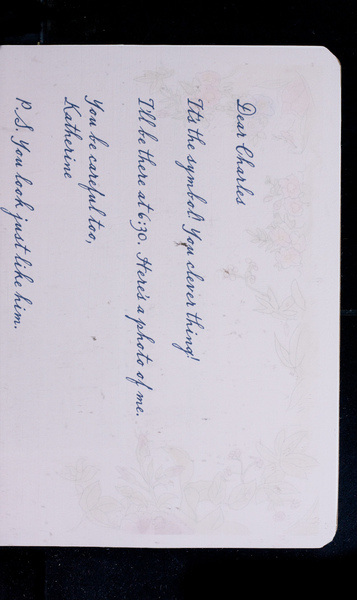 Dear Charles
It's the symbol! You clever thing!
I'll be there at 6:30. Here's a photo of me.
You be careful too,
Katherine
P.S. You look just like him.